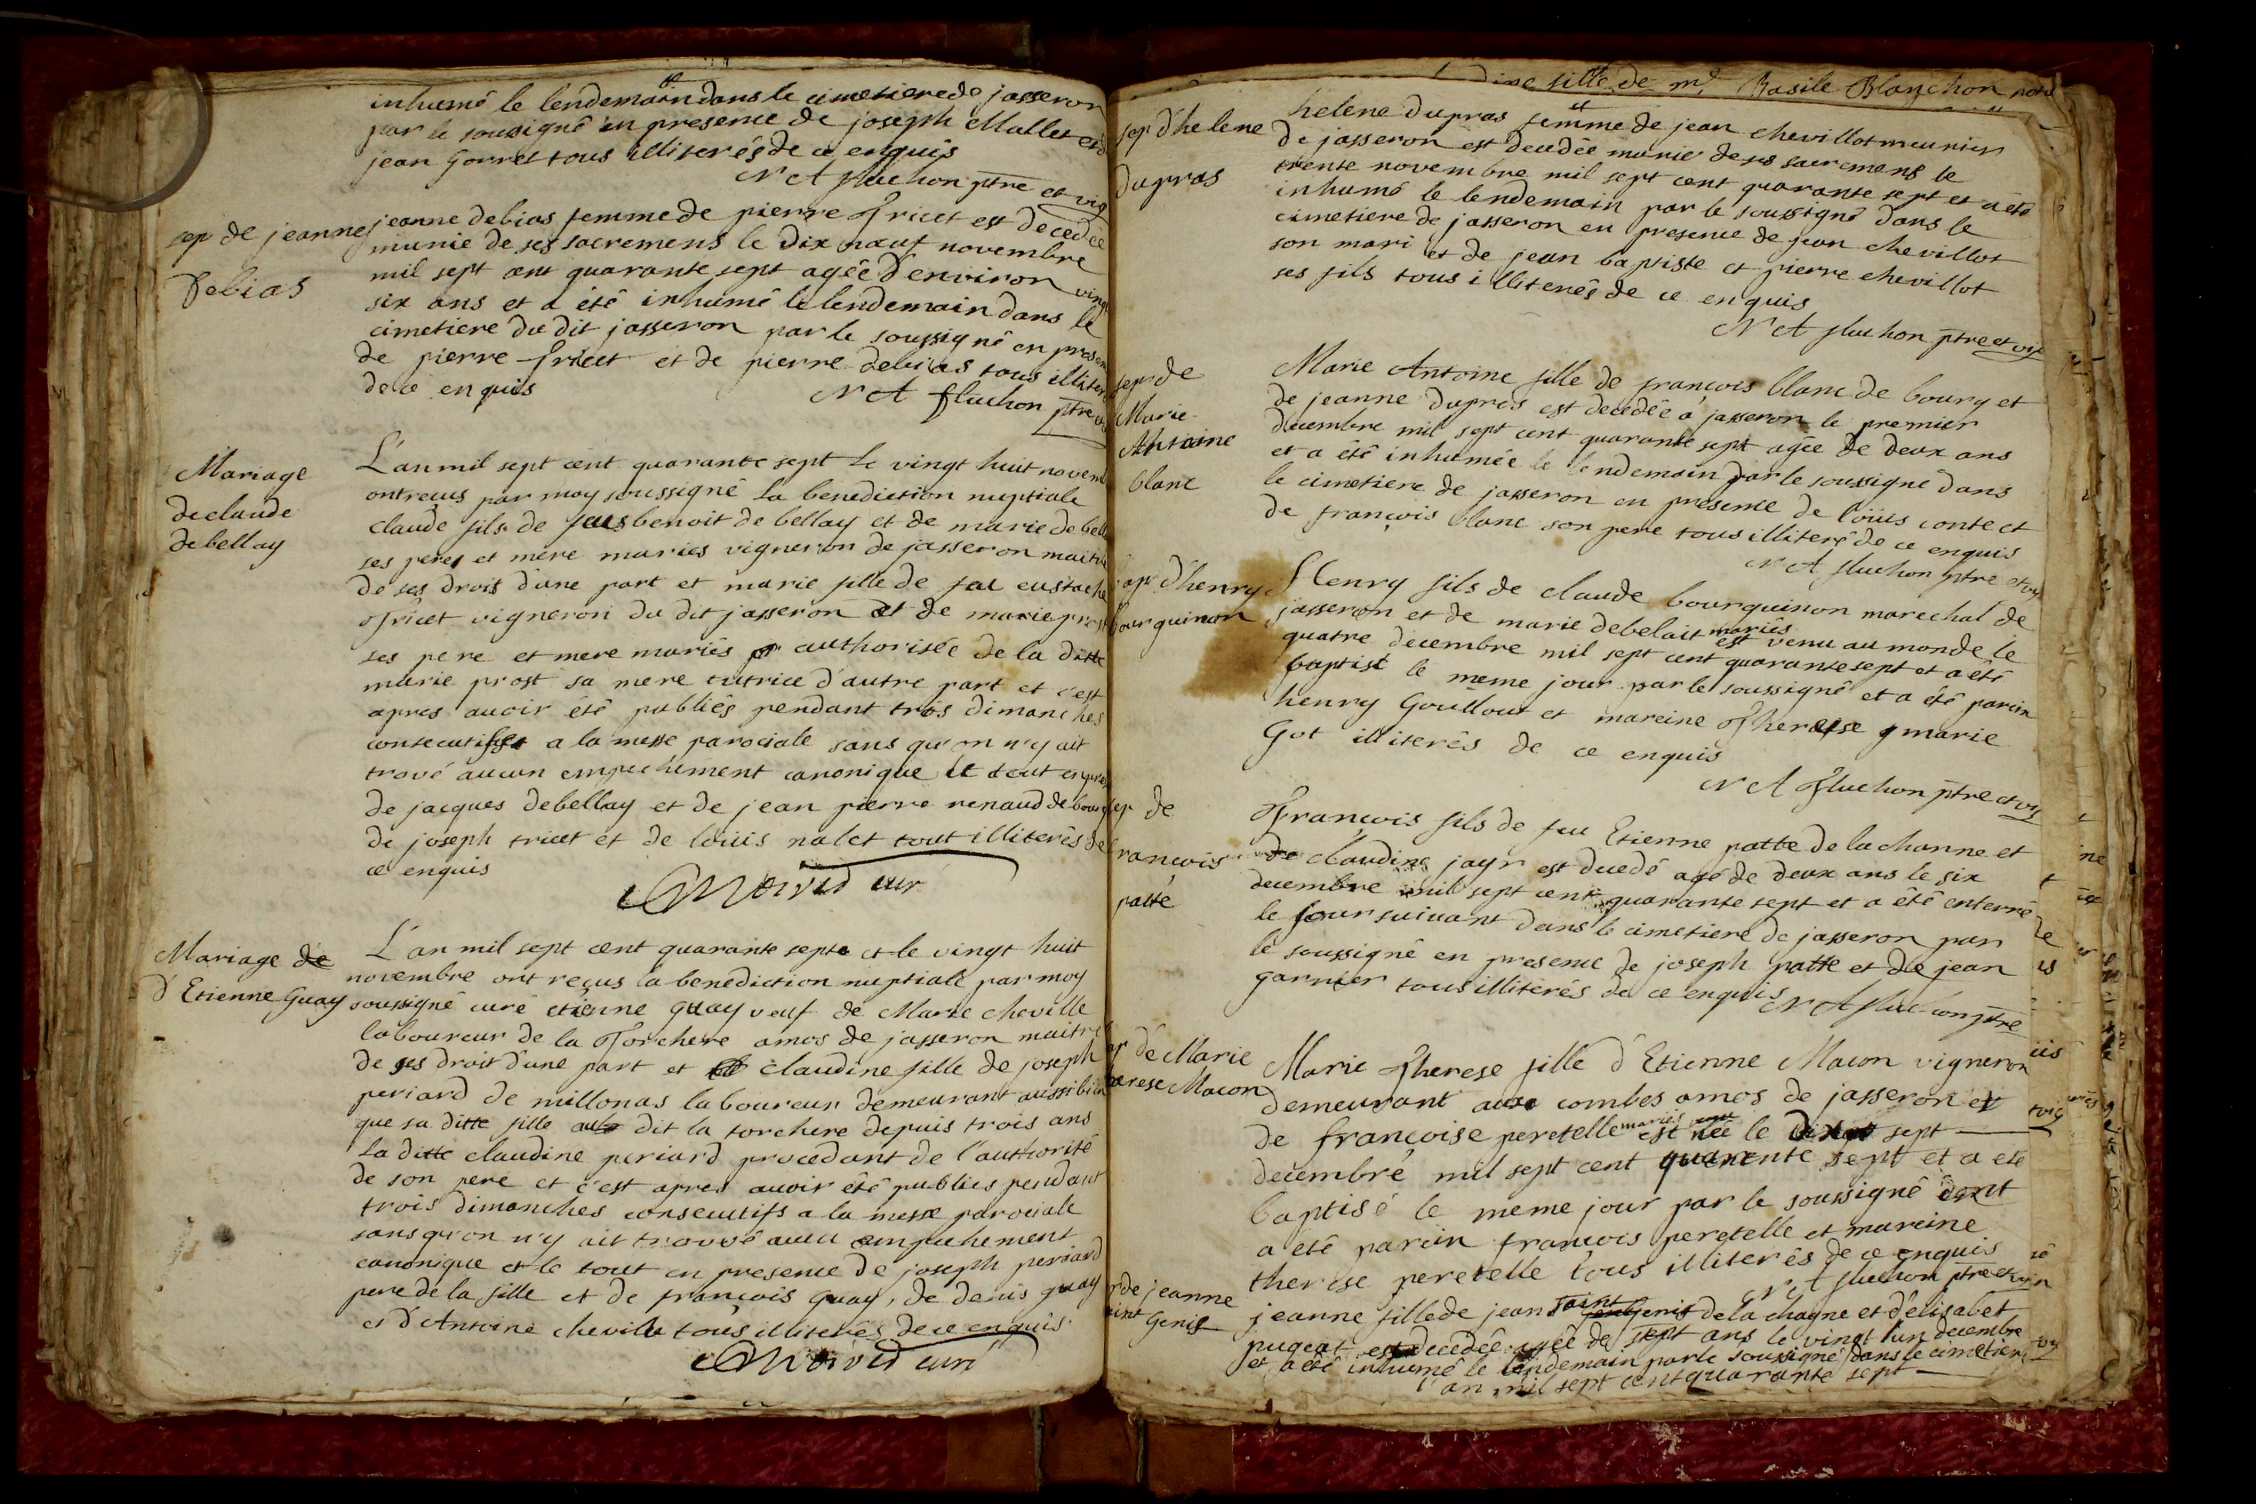 inhumé le lendemain dans le cimetiere de jasseron
par le sousigné en presence de joseph Mallet et de
jean Gorret tous illiterés de ce enquis
N A fluchon ptre et vic
sep de jeanne
Debias
jeanne debias femme de pierre fricet est decedée
munie de ses sacremens le dix nauf novembre
mil sept cent quarante sept agée d'environ vingt
six ans et a été inhumé le lendemain dans le
cimetiere du dit jasseron par le soussigné en presen
de pierre fricet et de pierre debias tous illiter
de ce enquis
N A fluchon ptre
Mariage
de claude
de bellay
L'an mil sept cent quarante sept le vingt huit novem
ont reçus par moy soussigné la benediction nuptiale
claude fils de benoit de bellay et de marie de bell
ses peres et mère mariés vigneron de jasseron maitre
de ses droit d'une part et marie fille de feu eustache
fricet vigneron du dit jasseron et de marie prost
ses pere et mere mariés authorisée de la ditte
marie prost sa mere tutrice d'autre part et c'est
apres avoir été publiés pendant trois dimanches
consecutifs a la messe parociale sans qu'on n'y ait
trové aucun empechement canonique le tout en pres
de jacques debellay et de jean pierre renaud de bourg
de joseph fricet et de loüis nalet tout illiterés de
ce enquis
curé
Mariage de
d'Etienne Guay
L'an mil sept cent quarante sept et le vingt huit
novembre ont reçus la benediction nuptiale par moy
soussigné curé etienne guay veuf de Marie cheville
laboureur de la Torchere amos de jasseron maitre
de ses droit d'une part et claudine fille de joseph
periard de millonas laboureur demeurant aussi bien
que sa ditte fille au dit la torchere depuis trois ans
la ditte claudine periard procedant de l'authorité
de son pere et c'est apres avoir été publiés pendant
trois dimanches consecutifs a la messe parociale
sans qu'on n'y ait trouvé aucu empechement
canonique et le tout en presence de joseph periard
pere de la fille et de françois guay, de denis guay
et d'Antoine cheville tous illiterés de ce enquis
curé
fille de m.e Basile Blanchon
sep d'helene
dupras
helene dupras femme de jean chevillot meunier
de jasseron est decedée munie de ses sacremens le
trente novembre mil sept cent quarante sept et a été
inhumé le lendemain par le soussigné dans le
cimetiere de jasseron en presence de jean chevillot
son mari et de jean baptiste et pierre chevillot
ses fils tous illiterés de ce enquis
N A fluchon ptre et vic
sep de
Marie
Antoine
blanc
Marie Antoine fille de françois blanc de bourg et
de jeanne dupras est decedée a jasseron le premier
decembre mil sept cent quarante sept agée de deux ans
et a été inhumée le lendemain par le soussigné dans
le cimetiere de jasseron en presence de loüis conte et
de françois blanc son pere tous illiteré de ce enquis
N A fluchon ptre et vic
bap d'henry
bourguinon
Henry fils de claude bourguinon marechal de
jasseron et de marie debelait mariés est venu au monde le
quatre decembre mil sept cent quarante sept et a été
baptisé le meme jour par le soussigné et a été parain
henry Goullout et mareine Therese marie
Got illiterés de ce enquis
N A fluchon ptre et vic
sep de
françois
patte
François fils de feu Etienne patte de la channe et
de claudine jayr est decedé agé de deux ans le six
decembre mil sept cent quarante sept et a été enterré
le jour suivant dans le cimetiere de jasseron par
le soussigné en presence de joseph patte et de jean
garnier tous illiterés de ce enquis N A fluchon ptre
bap de Marie
therese Macon
Marie Therese fille d'Etienne Macon vigneron
demeurant aux combes amos de jasseron et
de françoise peretelle mariés est née le dix sept
decembre mil sept cent quarente sept et a eté
baptisé le meme jour par le soussigné dont
a été parain françois peretelle et mareine
therese peretelle tous illiterés de ce enquis
N A fluchon ptre et vic
sep de jeanne
saint Genis
jeanne fille de jean saint genis de la chagne et d'elisabet
pugeat est decedée agée de sept ans le vingt un decembre
et a été inhumé le lendemain par le soussigné dans le cimetiere
l'an mil sept cent quarante sept